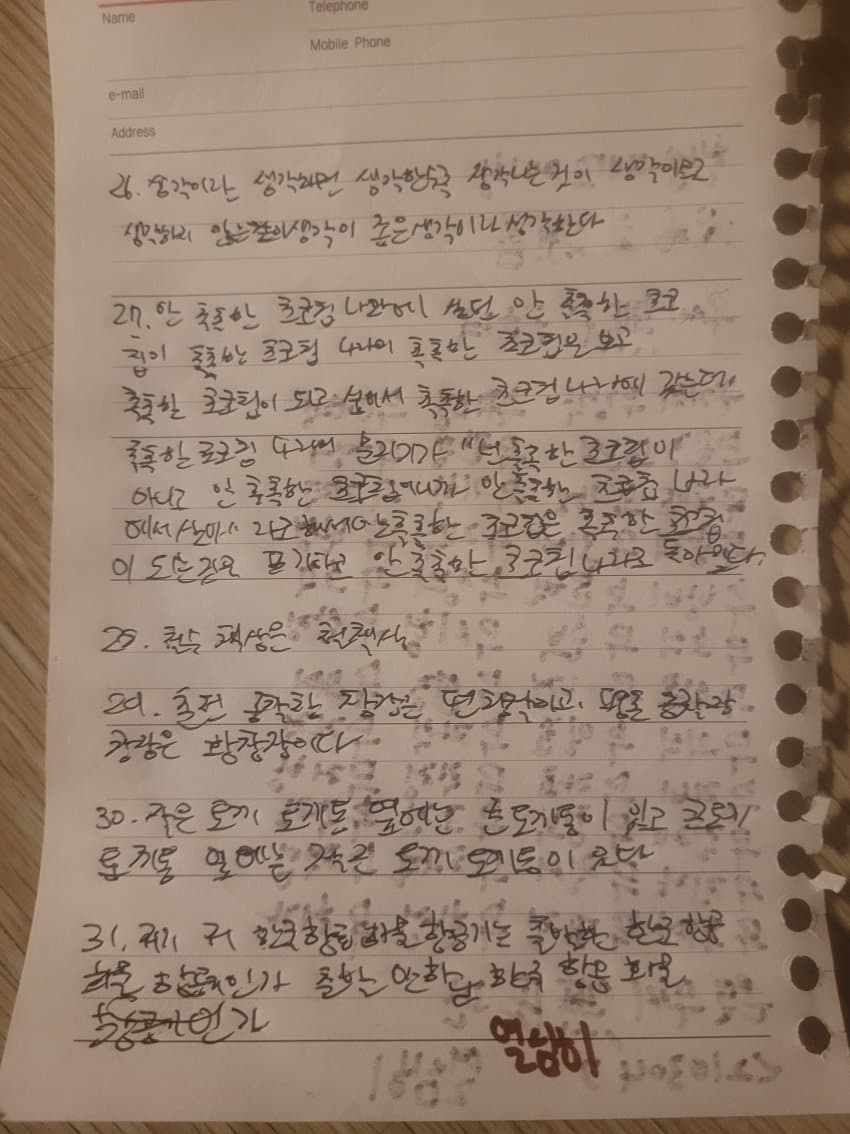 Name
Telephone
Mobile Phone
e-mail
Address
26. 생각이란 생각하면 생각할수록 생각나는 것이 생각이므로
생각하지 않는 생각이 좋은생각이라 생각한다
27. 안 촉촉한 초코칩 나라에 살던 안 촉촉한 초코
칩이 촉촉한 초코칩 나라의 촉촉한 초코칩을 보고
촉촉한 초코칩이 되고 싶어서 촉촉한 초코칩 나라에 갔는데,
촉촉한 초코칩 나라의 문지기가 "넌 촉촉한 초코칩이
아니고 안 촉촉한 초코칩이니까 안 촉촉한 초코칩 나라
에서 살아" 라고해서 안촉촉한 초코칩은 촉촉한 초코칩
이 되는것을 포기하고 안 촉촉한 초코칩 나라로 돌아왔다.
책상은 철책상
29. 출판 장점은 편찬
이다
30. 작은 토끼 토끼통 옆에는 큰토끼통이 있고 큰토끼
토끼통 옆에는 작은 토끼 토끼통이 있다
31. 저기 저 한국항공 화물 항공기는 출발할 한국 항공
화물 항공기인가 출발 안할 한국 항공 화물
항공기인가
열심히